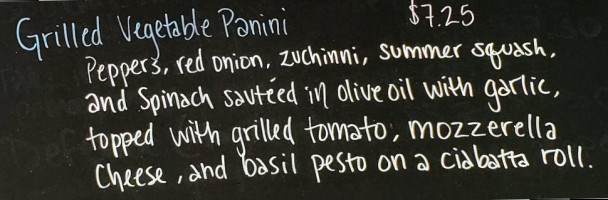 Grilled Vegetable Panini $7.25
Peppers, red onion, zuchinni, summer squash,
and Spinach sautéed in olive oil with garlic,
topped with grilled tomato, mozzerella
Cheese, and basil pesto on a ciabatta roll.